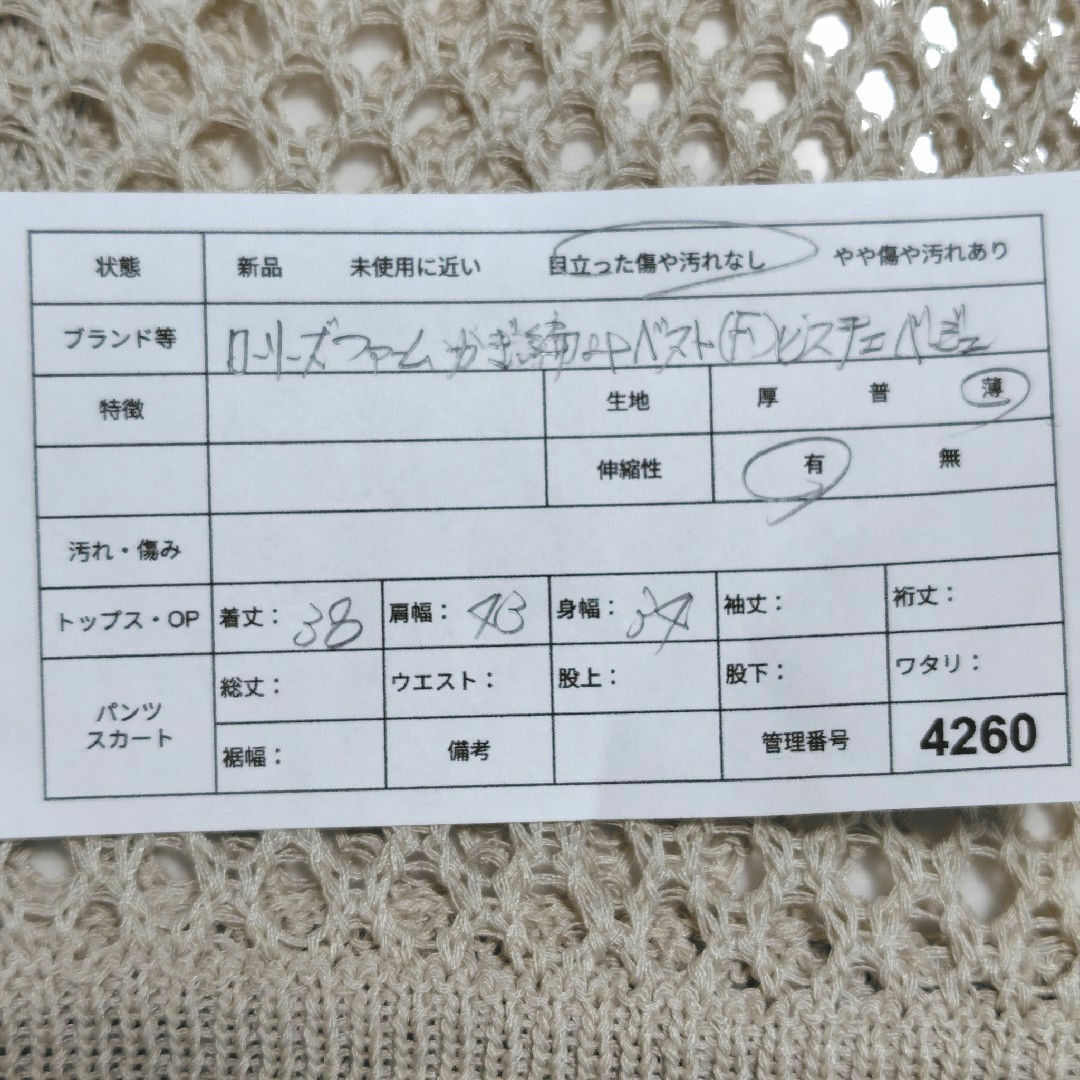 状態 新品 未使用に近い 目立った傷や汚れなし やや傷や汚れあり
ブランド等 ローリーズファーム かぎ編み ベスト(F)ビスチェ ベージュ
特徴 生地 厚 普 薄
伸縮性 有 無
汚れ・傷み
トップス・OP 着丈: 38 肩幅: 43 身幅: 34 袖丈: 裄丈:
パンツ スカート 総丈: ウエスト: 股上: 股下: ワタリ:
裾幅: 備考 管理番号 4260